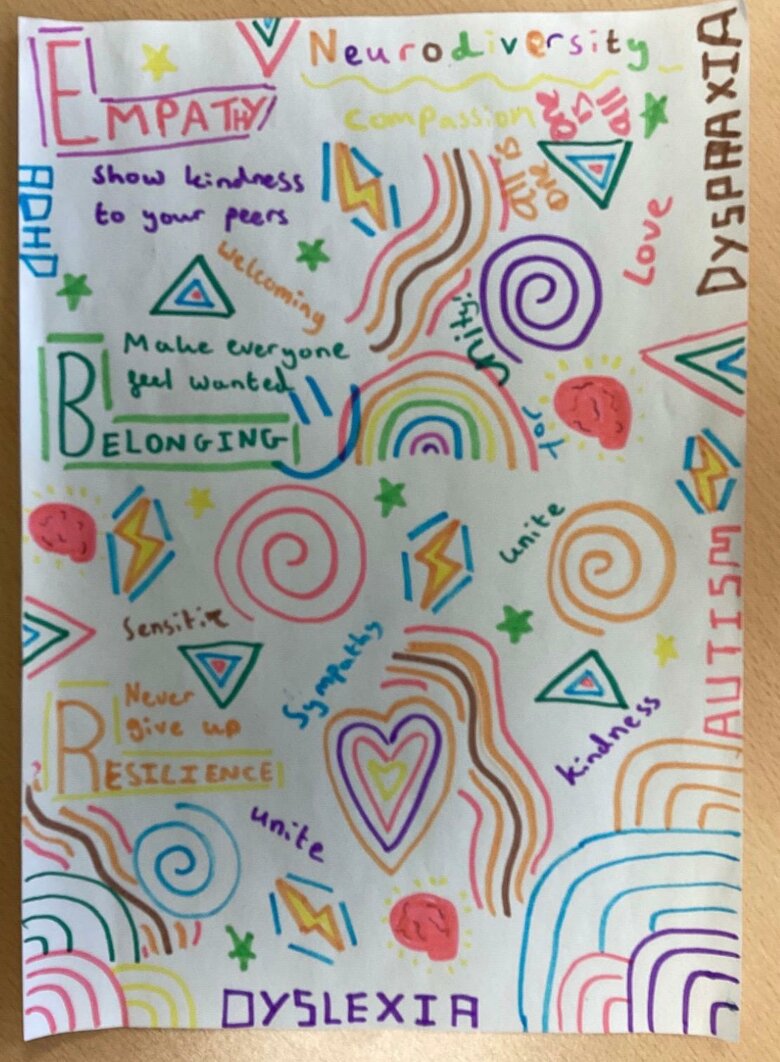 EMPATHY
Neurodiversity
compassion
DYSPRAXIA
ADHD
Show kindness
to your peers
Love
welcoming
unity!
Make everyone
feel wanted
BELONGING
unite
AUTISM
Sensitive
Sympathy
Never
give up
RESILIENCE
kindness
unite
DYSLEXIA